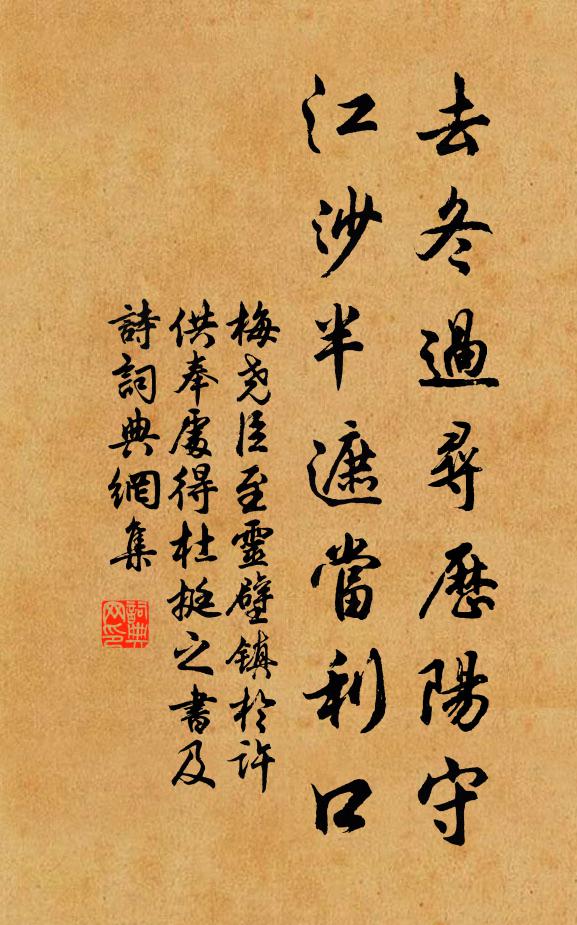 去冬過尋歷陽守
江沙半遮當利口
梅堯臣至靈壁鎮於許
供奉處得杜挺之書及
詩詞典網集
詞典网印